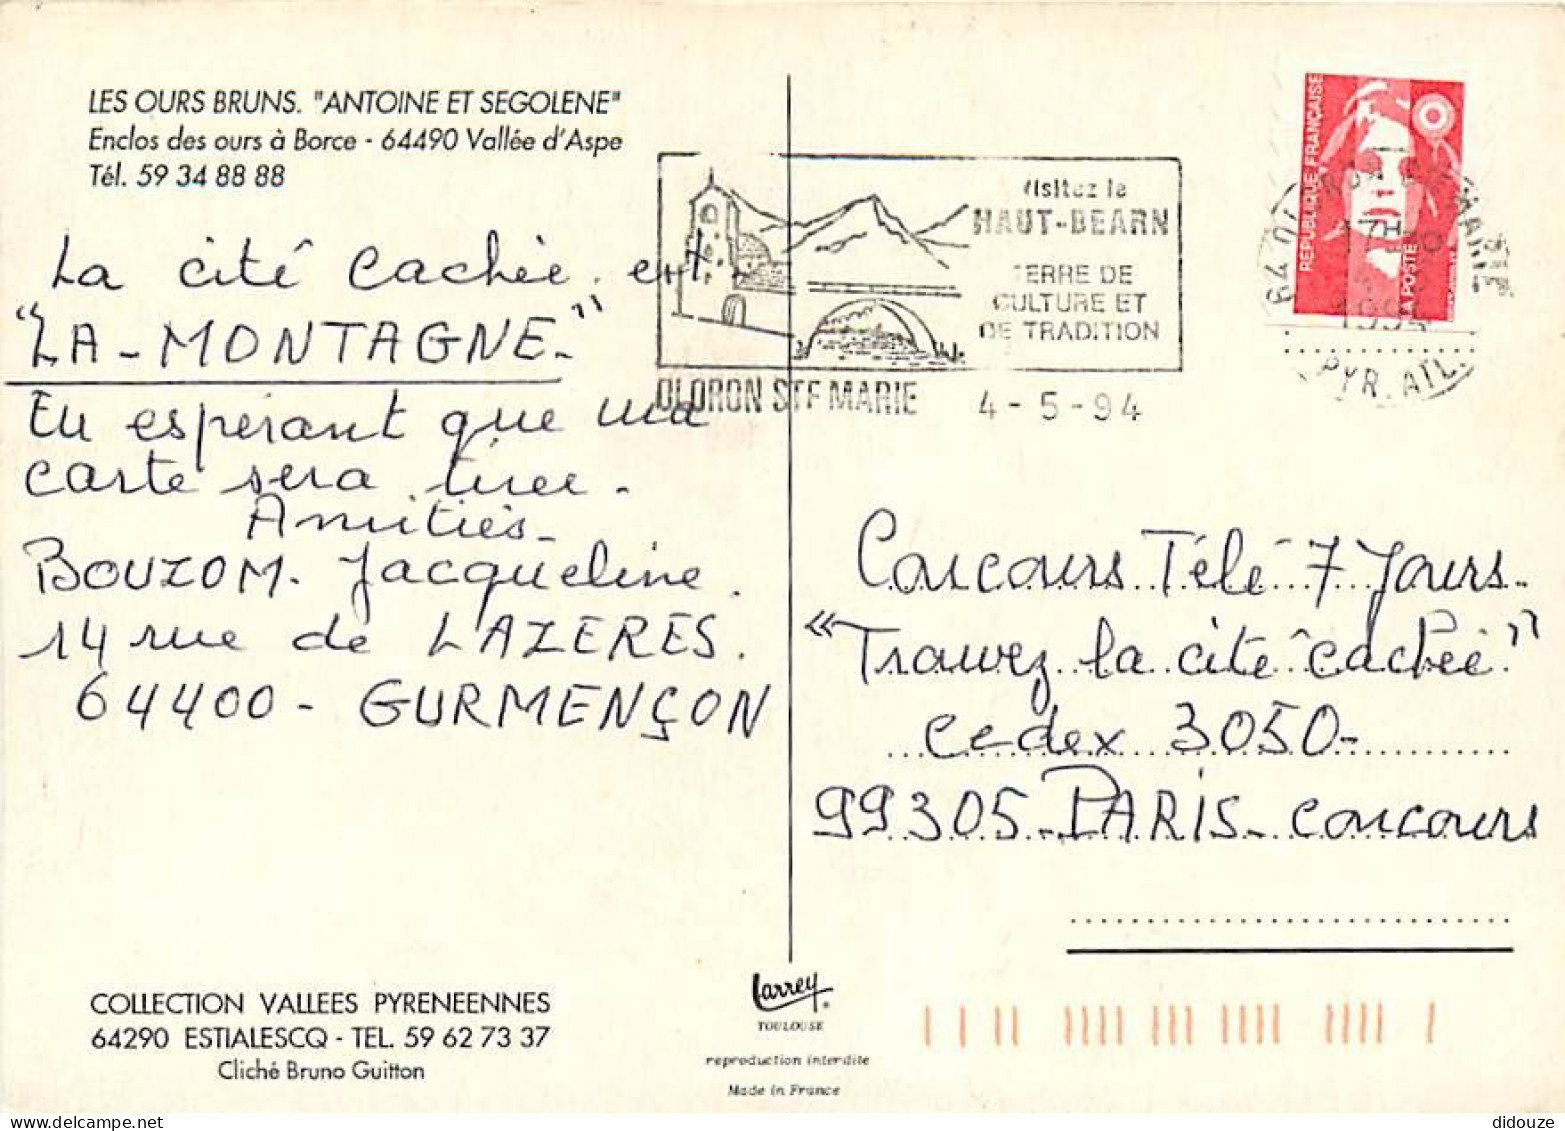 LES OURS BRUNS. "ANTOINE ET SEGOLENE"
Enclos des ours à Borce - 64490 Vallée d'Aspe
Tél. 59 34 88 88
La cité cachée est
"LA - MONTAGNE - "
En espérant que ma
carte sera tirée -
Amitiés -
BOUZOM. Jacqueline.
14 rue de LAZERES.
64400 - GURMENÇON
COLLECTION VALLEES PYRENEENNES
64290 ESTIALESCQ - TEL. 59 62 73 37
Cliché Bruno Guitton
Visitez le
HAUT-BEARN
TERRE DE
CULTURE ET
DE TRADITION
OLORON STE MARIE 4 - 5 - 94
REPUBLIQUE FRANÇAISE
LA POSTE
64 OLORON STE MARIE
17H
1994
PYR. ATL.
Concours Télé 7 Jours -
"Trouvez la cité cachée"
cedex 3050 -
99305 - PARIS - concours
Larrey
TOULOUSE
reproduction interdite
Made in France
didouze